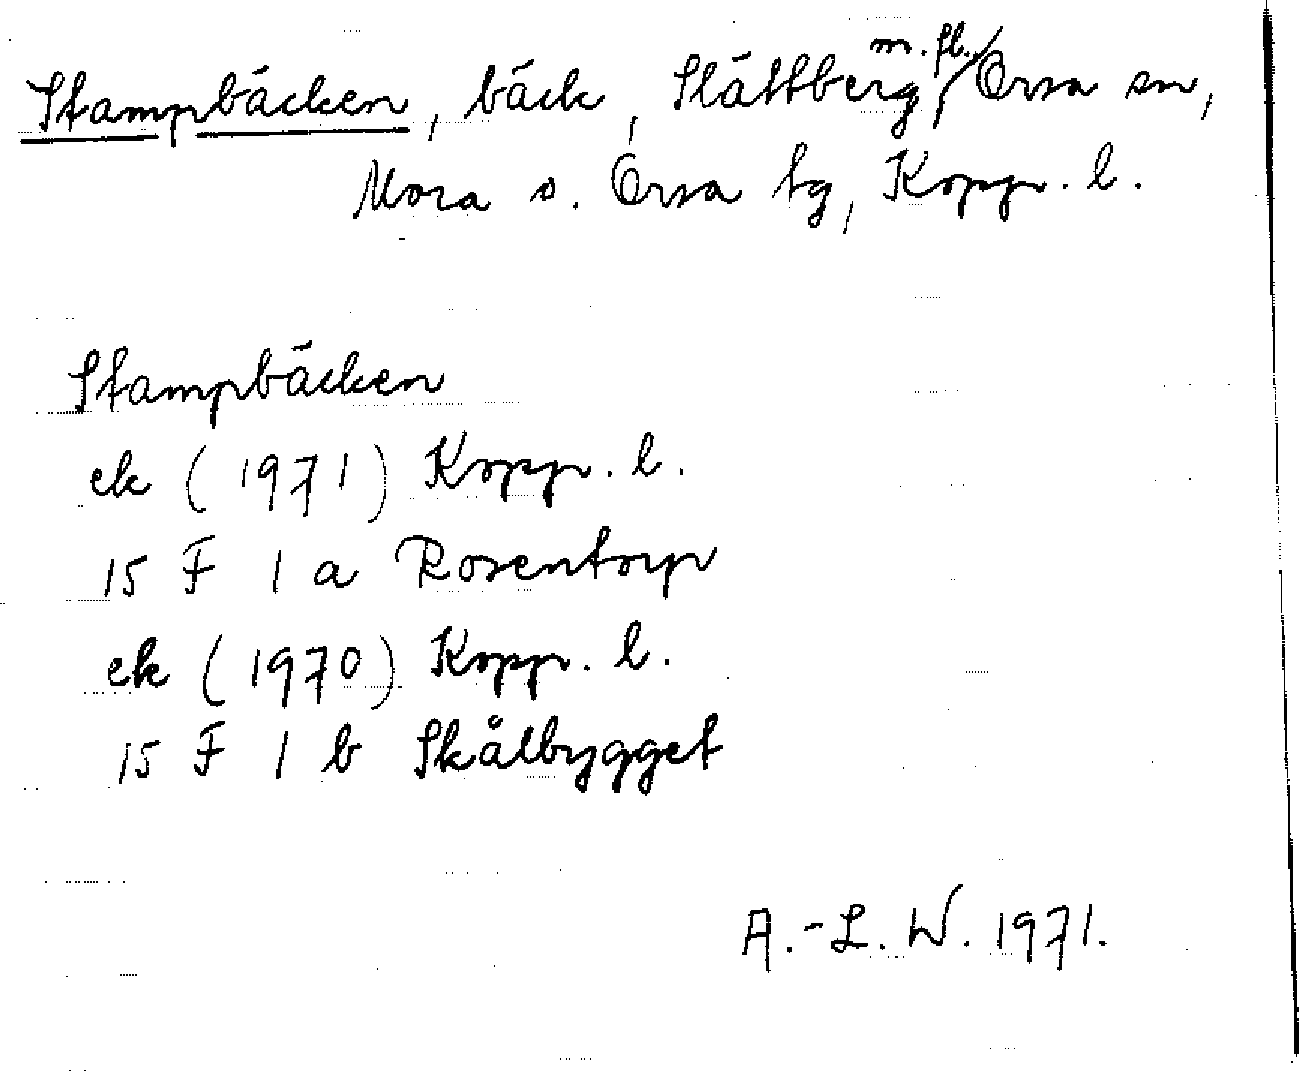 Stampbäcken, bäck, Slättberg m.fl., Orsa sn,
Mora o. Orsa tg, Kopp. l.
Stampbäcken
ek (1971) Kopp. l.
15 F 1 a Rosentorp
ek (1970) Kopp. l.
15 F 1 b Skålbygget
A.-L. W. 1971.